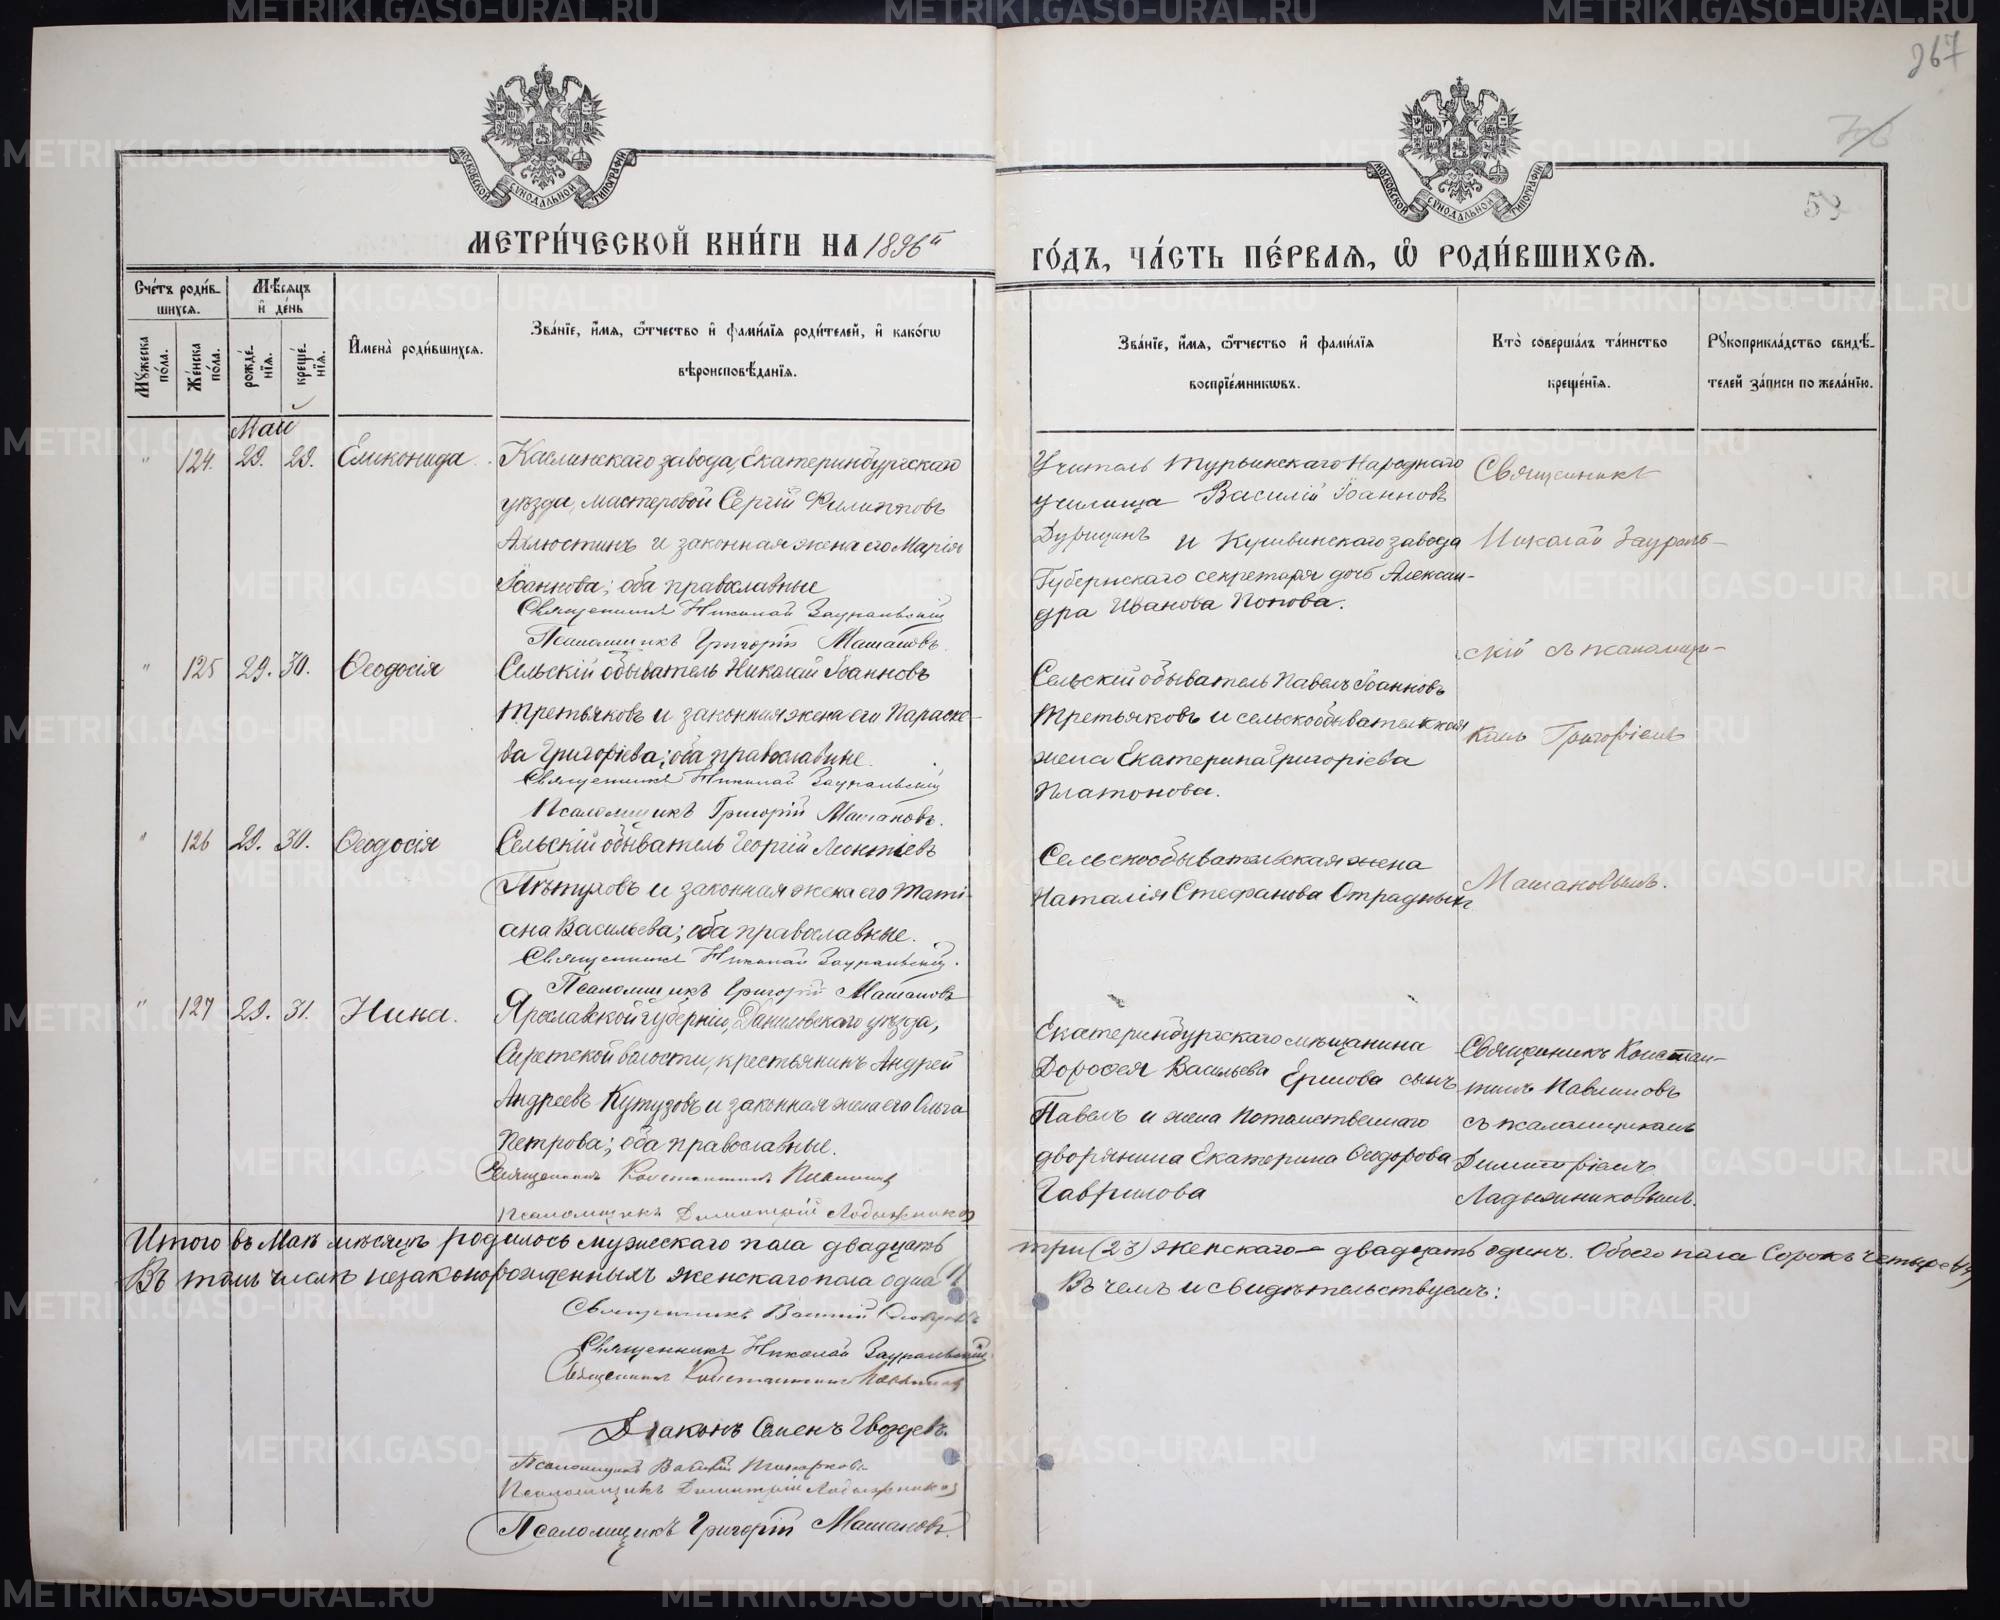 267
59
МОСКОВСКОЙ СѴНОДАЛЬНОЙ ТИПОГРАФІИ
МОСКОВСКОЙ СѴНОДАЛЬНОЙ ТИПОГРАФІИ
МЕТРИ́ЧЕСКОЙ КНИ́ГИ НА 1896й
ГО́ДЪ, ЧА́СТЬ ПЕ́РВАЯ, Ѡ РОДИ́ВШИХСЯ.
Сче́тъ роди́в-
шихся.
Мѣ́сяцъ
и҆ де́нь
Мꙋ́жеска по́ла.
Же́нска по́ла.
рожде́-
нїя.
креще́-
нїя.
И҆мена̀ роди́вшихся.
Зва́нїе, и҆́мя, ѻ҆́тчество и҆ фами́лїя роди́телей, и҆ како́гѡ
вѣроисповѣ́данїя.
Зва́нїе, и҆́мя, ѻ҆́тчество и҆ фами́лїя
воспрїе́мникѡвъ.
Кто̀ соверша́лъ та́инство
креще́нїя.
Рꙋкоприкла́дство свидѣ́-
телей за́писи по жела́нїю.
Май
" 124. 29. 29. Еликонида.
Каслинскаго завода, Екатеринбургскаго
уѣзда, мастеровой Сергій Филипповъ
Ахлюстинъ и законная жена его Марія
Іоаннова; оба православные
Священникъ Николай Зауральскій
Псаломщикъ Григорій Машановъ.
Учитель Турьинскаго Народнаго
училища Василій Іоанновъ
Дурицинъ и Кушвинскаго завода
Губернскаго секретаря дочь Алексан-
дра Иванова Попова.
Священникъ
Николай Заураль-
скій съ псаломщи-
комъ Григоріемъ
Машановымъ.
" 125 29. 30. Ѳеодосія
Сельскій обыватель Николай Іоанновъ
Третьяковъ и законная жена его Параске-
ва Григорьева; оба православные.
Священникъ Николай Зауральскій
Псаломщикъ Григорій Машановъ.
Сельскій обыватель Павелъ Іоанновъ
Третьяковъ и сельскообывательская
жена Екатерина Григоріева
Платонова.
" 126 29. 30. Ѳеодосія
Сельскій обыватель Георгій Леонтіевъ
Пѣтуховъ и законная жена его Таті-
ана Васильева; оба православные.
Священникъ Николай Зауральскій.
Псаломщикъ Григорій Машановъ
Сельскообывательская жена
Наталія Стефанова Отрадныхъ
" 127 29. 31. Нина.
Ярославской губерніи, Даниловскаго уѣзда,
волости, крестьянинъ Андрей
Андреевъ Кутузовъ и законная жена его Ольга
Петрова; оба православные.
Священникъ Константинъ
Псаломщикъ Димитрій Ладыжниковъ
Екатеринбургскаго мѣщанина
Дороѳея Васильева Ершова сынъ
Павелъ и жена потомственнаго
дворянина Екатерина Ѳеодорова
Гаврилова
Священникъ Констан-
тинъ Павлиновъ
съ псаломщикомъ
Димитріемъ
Ладыжниковымъ.
Итого въ Маѣ мѣсяцѣ родилось мужескаго пола двадцать три (23) женскаго – двадцать одинъ. Обоего пола Сорокъ четыре (44)
Въ томъ числѣ незаконорожденныхъ женскаго пола одна (1) Въ чемъ и свидѣтельствуемъ:
Священникъ Василій
Священникъ Николай Зауральскій
Священникъ Константинъ Павлиновъ
Діаконъ Семенъ Гвоздевъ.
Псаломщикъ Василій
Псаломщикъ Димитрій Ладыжниковъ
Псаломщикъ Григорій Машановъ.